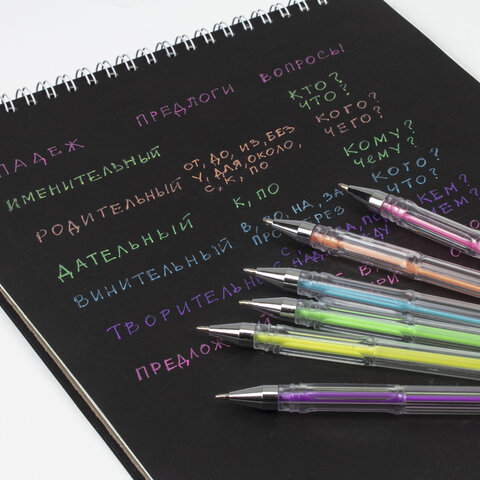 ПАДЕЖ ПРЕДЛОГИ ВОПРОСЫ
ИМЕНИТЕЛЬНЫЙ КТО? ЧТО?
РОДИТЕЛЬНЫЙ ОТ, ДО, ИЗ, БЕЗ У, ДЛЯ, ОКОЛО, С, К, ПО КОГО? ЧЕГО?
ДАТЕЛЬНЫЙ К, ПО КОМУ? ЧЕМУ?
ВИНИТЕЛЬНЫЙ В, ВО, НА, ЗА КОГО? ЧТО?
ТВОРИТЕЛЬНЫЙ КЕМ? ЧЕМ?